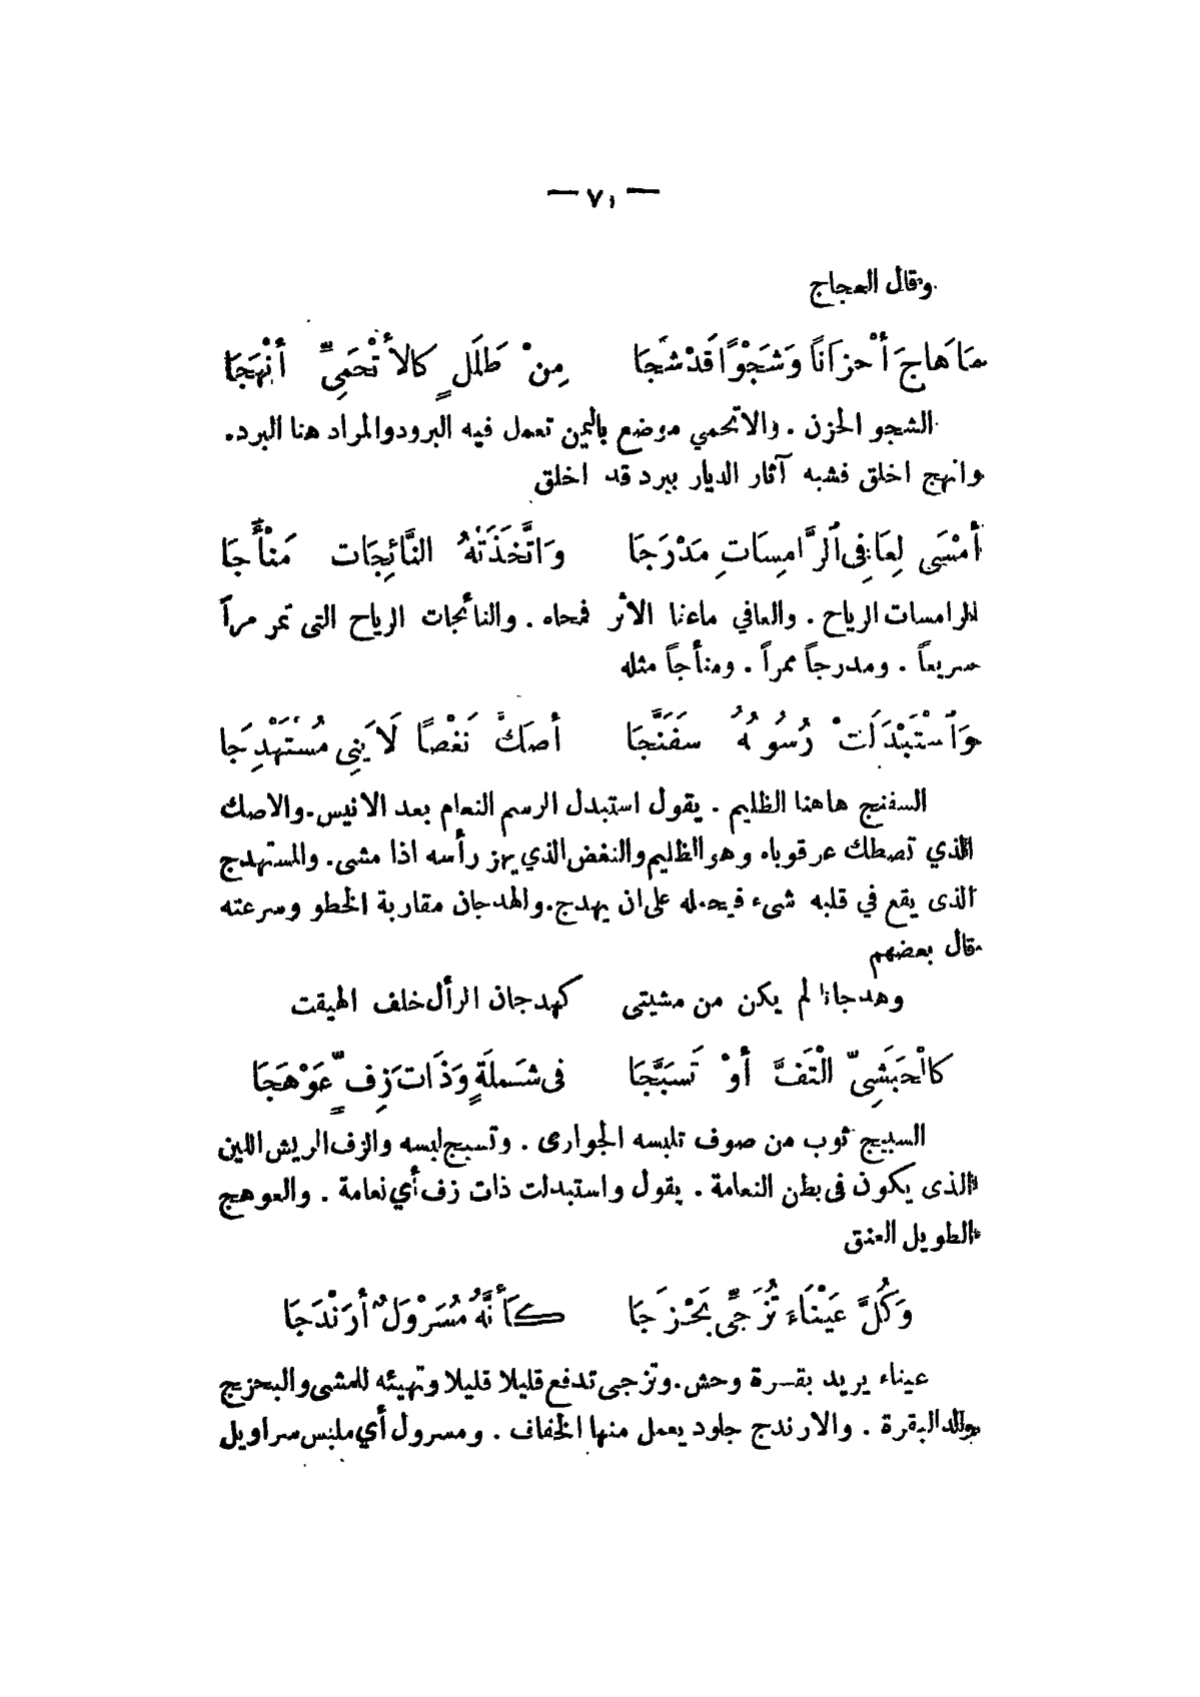 — ٧١ —
وقال العجاج
مَا هَاجَ أَحْزَانًا وَشَجْوًا قَدْ شَجَا مِنْ طَلَلٍ كَالأَتْحَمِيِّ أَنْهَجَا
الشجو الحزن . والاتحمي موضع باليمن تعمل فيه البرود والمراد هنا البرد .
وانهج اخلق فشبه آثار الديار ببرد قد اخلق
أَمْسَى لِعَافِى ٱلرَّامِسَاتِ مَدْرَجَا وَاتَّخَذَتْهُ النَّائِجَات مَنْأَجَا
الرامسات الرياح . والعافي ماعنا الاثر فمحاه . والنائجات الرياح التى تمر مراً
سريعاً . ومدرجاً ممراً . ومنأجاً مثله
وَٱسْتَبْدَلَتْ رُسُومُهُ سَفَنَّجَا أَصَكَّ نَغْضًا لَا يَنِى مُسْتَهْدِجَا
السفنج هاهنا الظليم . يقول استبدل الرسم النعام بعد الانيس . والاصك
الذي تصطك عرقوباه وهو الظليم والنغض الذي يهز رأسه اذا مشى . والمستهدج
الذى يقع في قلبه شىء فيحمله على ان يهدج . والهدجان مقاربة الخطو وسرعته
قال بعضهم
وهدجانا لم يكن من مشيتى كهدجان الرأل خلف الهيقت
كَالْحَبَشِىِّ الْتَفَّ أَوْ تَسَبَّجَا فى شَملَةٍ وَذَات زِفٍّ عَوْهَجَا
السبيج ثوب من صوف تلبسه الجوارى . وتسبج لبسه والزف الريش اللين
الذى يكون فى بطن النعامة . يقول واستبدلت ذات زف أي نعامة . والعوهج
الطويل العنق
وَكُلَّ عَيْنَاءَ تُزَجِّى بَحْزَجَا كَأَنَّهُ مُسَرْوَلٌ أَرَنْدَجَا
عيناء يريد بقرة وحش . وتزجى تدفع قليلا قليلا وتهيئه للمشى والبحزج
ولد البقرة . والارندج جلود يعمل منها الخفاف . ومسرول أي ملبس سراويل